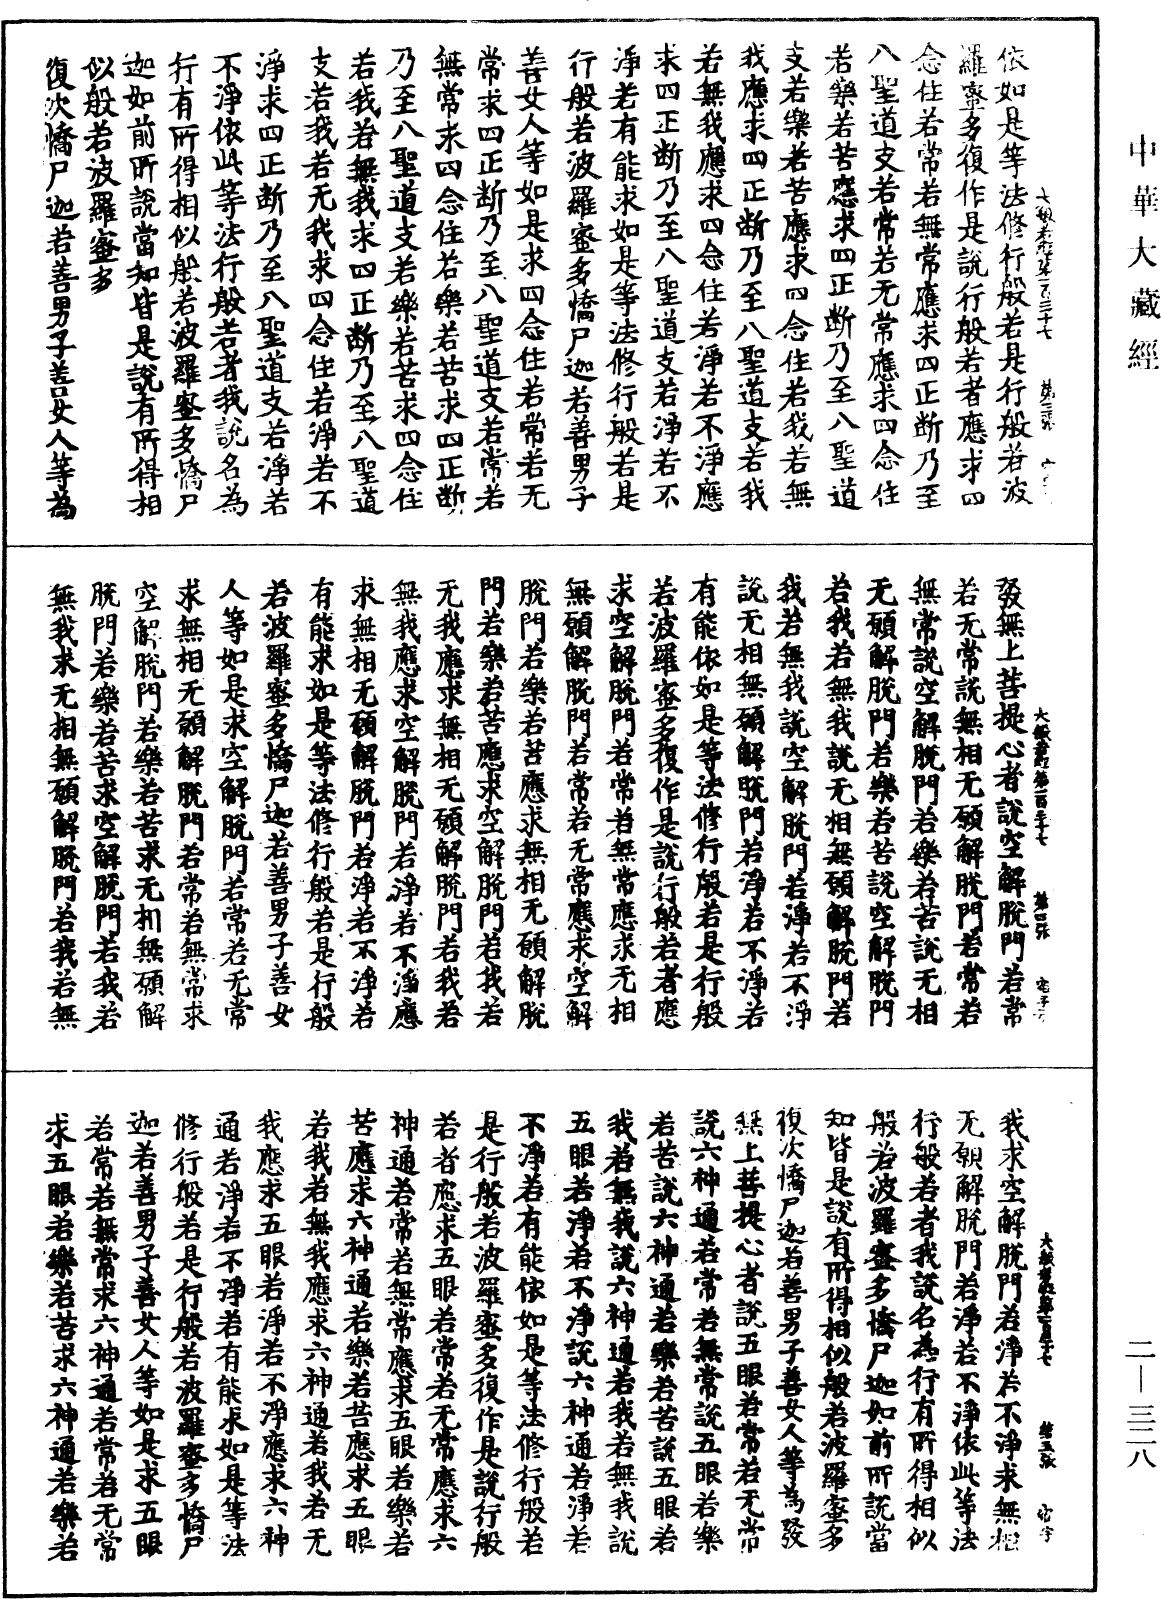 中華大藏經
二—三二八
依如是等法修行般若是行般若波
羅蜜多復作是說行般若者應求四
念住若常若無常應求四正断乃至
八聖道支若常若无常應求四念住
若樂若苦應求四正断乃至八聖道
支若樂若苦應求四念住若我若無
我應求四正断乃至八聖道支若我
若無我應求四念住若淨若不淨應
求四正断乃至八聖道支若淨若不
淨若有能求如是等法修行般若是
行般若波羅蜜多憍尸迦若善男子
善女人等如是求四念住若常若无
常求四正断乃至八聖道支若常若
無常求四念住若樂若苦求四正断
乃至八聖道支若樂若苦求四念住
若我若無我求四正断乃至八聖道
支若我若无我求四念住若淨若不
淨求四正断乃至八聖道支若淨若
不淨依此等法行般若者我說名為
行有所得相似般若波羅蜜多憍尸
迦如前所說當知皆是說有所得相
似般若波羅蜜多
復次憍尸迦若善男子善女人等為
發無上菩提心者說空解脫門若常
若无常說無相无願解脫門若常若
無常說空解脫門若樂若苦說无相
无願解脫門若樂若苦說空解脫門
若我若無我說无相無願解脫門若
我若無我說空解脫門若淨若不淨
說无相無願解脫門若淨若不淨若
有能依如是等法修行般若是行般
若波羅蜜多復作是說行般若者應
求空解脫門若常若無常應求无相
無願解脫門若常若无常應求空解
脫門若樂若苦應求無相无願解脫
門若樂若苦應求空解脫門若我若
无我應求無相无願解脫門若我若
無我應求空解脫門若淨若不淨應
求無相无願解脫門若淨若不淨若
有能求如是等法修行般若是行般
若波羅蜜多憍尸迦若善男子善女
人等如是求空解脫門若常若无常
求無相无願解脫門若常若無常求
空解脫門若樂若苦求无相無願解
脫門若樂若苦求空解脫門若我若
無我求无相無願解脫門若我若無
我求空解脫門若淨若不淨求無相
无願解脫門若淨若不淨依此等法
行般若者我說名為行有所得相似
般若波羅蜜多憍尸迦如前所說當
知皆是說有所得相似般若波羅蜜多
復次憍尸迦若善男子善女人等為發
無上菩提心者說五眼若常若无常
說六神通若常若無常說五眼若樂
若苦說六神通若樂若苦說五眼若
我若無我說六神通若我若無我說
五眼若淨若不淨說六神通若淨若
不淨若有能依如是等法修行般若
是行般若波羅蜜多復作是說行般
若者應求五眼若常若无常應求六
神通若常若無常應求五眼若樂若
苦應求六神通若樂若苦應求五眼
若我若無我應求六神通若我若无
我應求五眼若淨若不淨應求六神
通若淨若不淨若有能求如是等法
修行般若是行般若波羅蜜多憍尸
迦若善男子善女人等如是求五眼
若常若無常求六神通若常若无常
求五眼若樂若苦求六神通若樂若